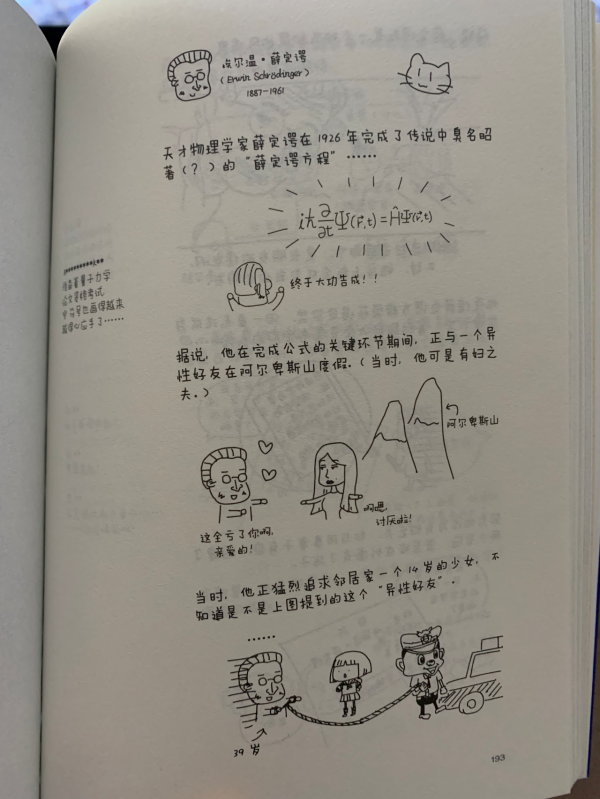 埃尔温·薛定谔
(Erwin Schrödinger)
1887-1961
天才物理学家薛定谔在1926年完成了传说中臭名昭
著(?)的“薛定谔方程”……
iℏ∂/∂t Ψ(r⃗,t)=ĤΨ(r⃗,t)
终于大功告成!!
量子力学
考试
越来
越得心应手了……
据说,他在完成公式的关键环节期间,正与一个异
性好友在阿尔卑斯山度假。(当时,他可是有妇之
夫。)
阿尔卑斯山
这全亏了你啊,
亲爱的!
啊嗯,
讨厌啦!
当时,他正猛烈追求邻居家一个14岁的少女,不
知道是不是上图提到的这个“异性好友”。
……
39岁
193